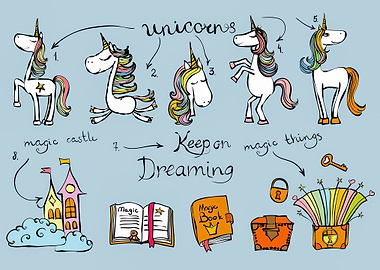 unicorns
1.
2.
3.
4.
5.
magic castle
8.
7.
Keep on
Dreaming
magic things
Magic
Magic
Book